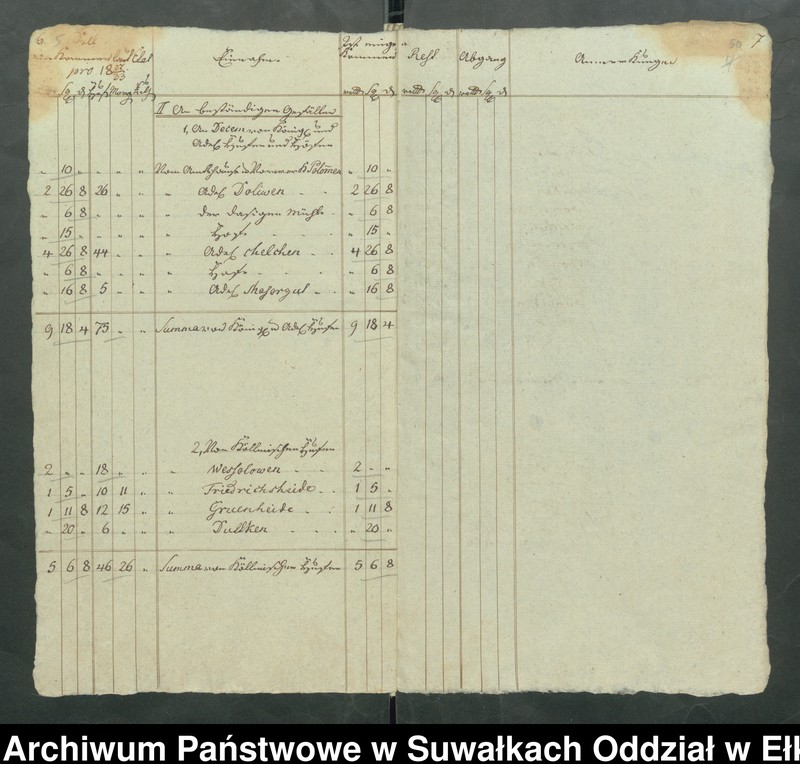 7
Soll
Kommen laut Etat
pro 18 32/33
Einnahme.
Ist eingekommen
Rest
Abgang
Anmerkungen
rtl Sg d
II An beständigen Gefällen
1, An Decem von Königl und
Adel Hufen und Höfen
„ 10 „ „ „ „ Vom Amtshause Vorwerk Polommen „ 10 „
2 26 8 26 „ „ „ Adel Doliwen 2 26 8
„ 6 8 „ „ „ „ der dasigen Mühle „ 6 8
„ 15 „ „ „ „ „ „ 15 „
4 26 8 44 „ „ „ Adel Chelchen 4 26 8
„ 6 8 „ „ „ „ „ 6 8
„ 16 8 5 „ „ „ Adel „ 16 8
9 18 4 75 „ „ Summa von Königl u Adel Hufen 9 18 4
2, Von Köllmischen Hufen
2 „ „ 18 „ „ „ Wessolowen 2 „ „
1 5 „ 10 11 „ „ Friedrichsheide 1 5 „
1 11 8 12 15 „ „ Gruenheide 1 11 8
„ 20 „ 6 „ „ „ Dullken „ 20 „
5 6 8 46 26 „ Summa von Köllmischen Hufen 5 6 8
Archiwum Państwowe w Suwałkach Oddział w Ełk